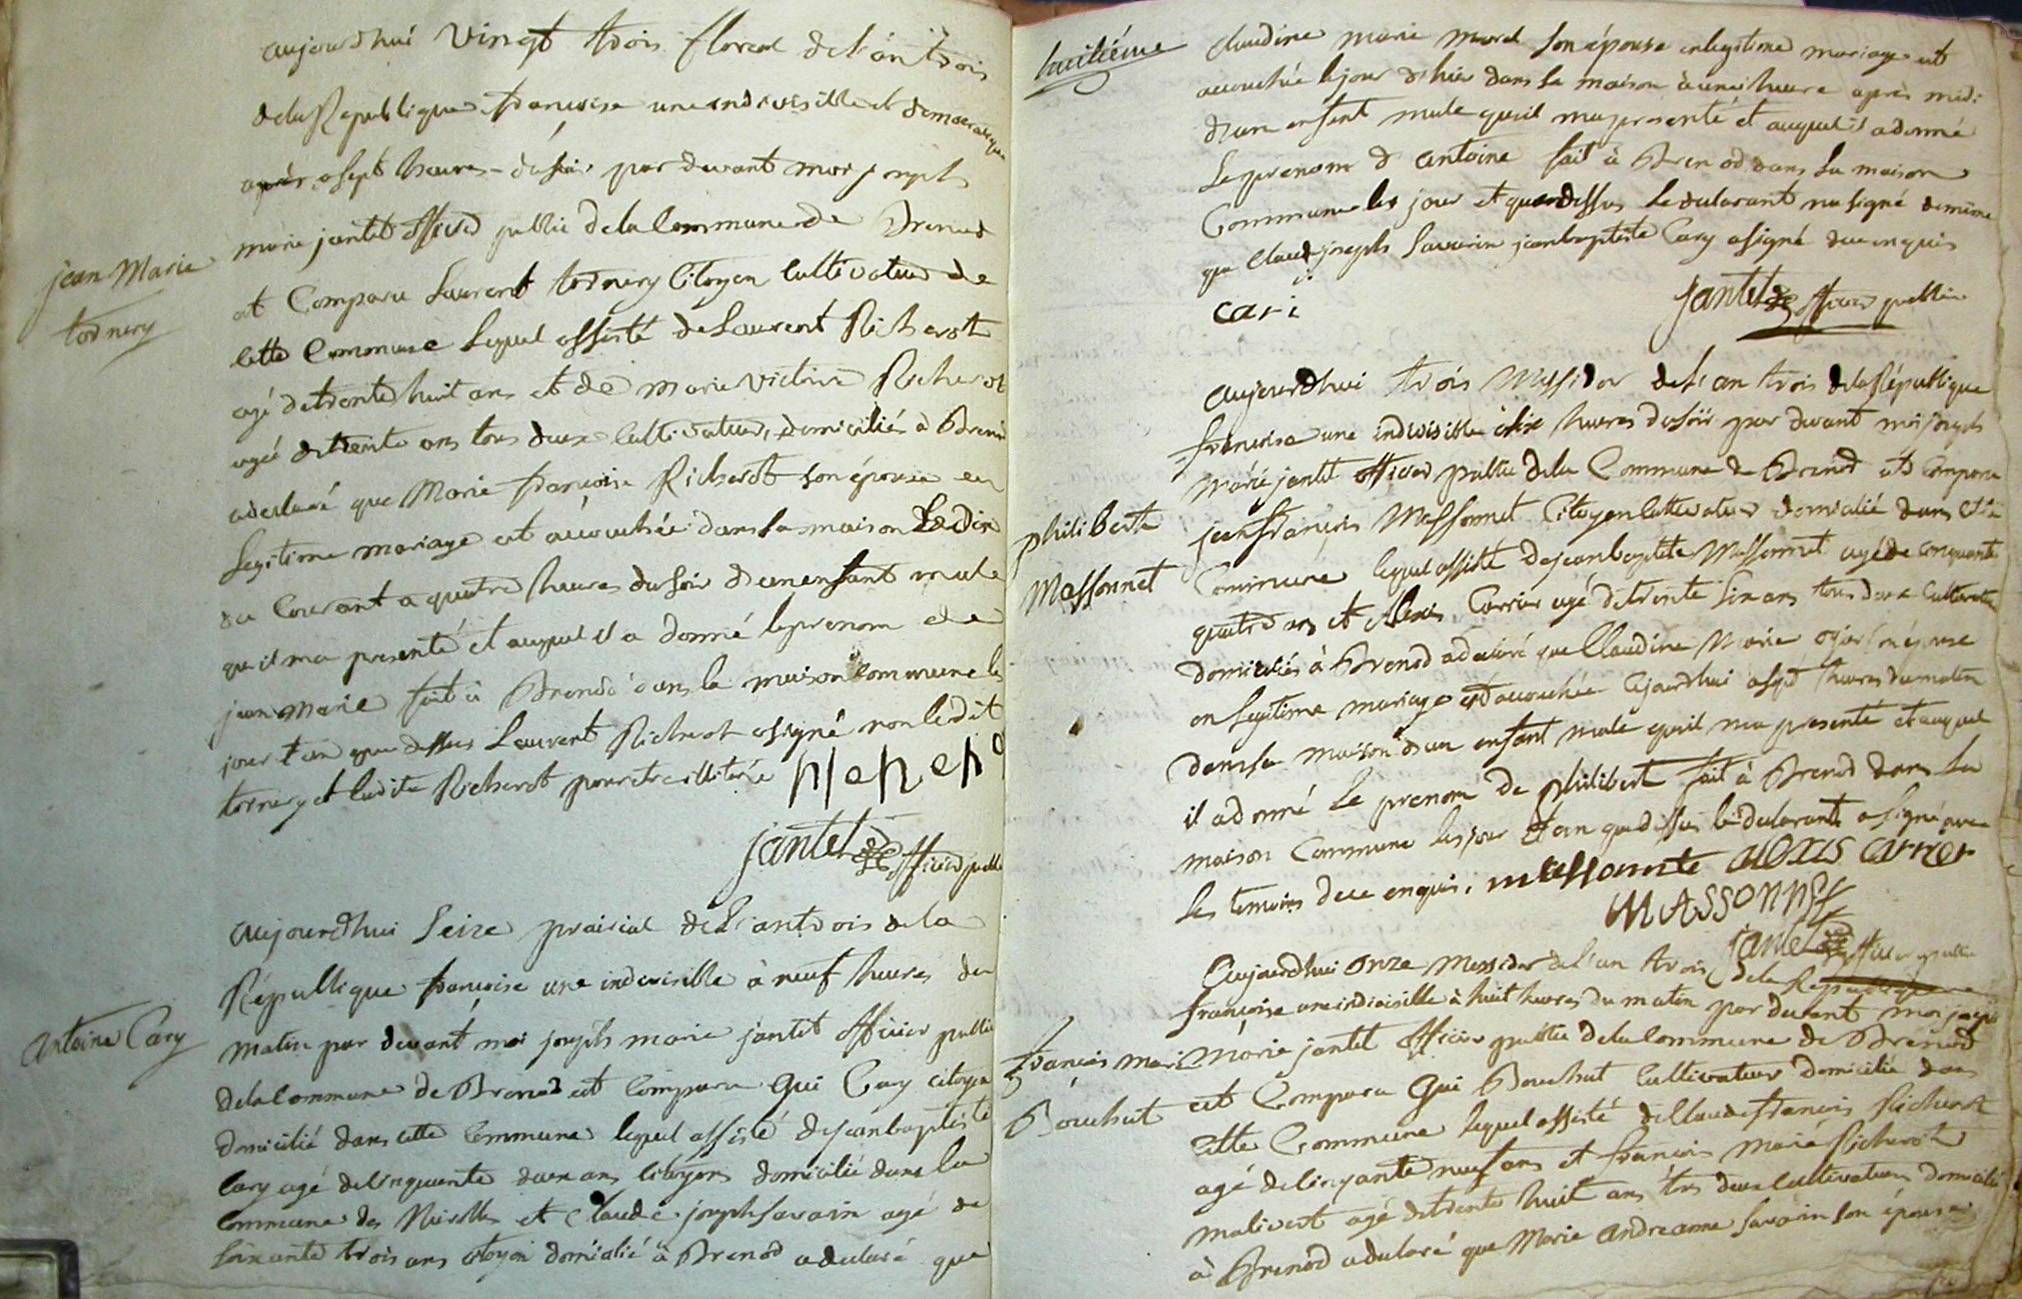 aujourdhui vingt trois floreal de l'an trois
de la Republique francoise une indivisible et democratique
a sept heures du soir par devant moi joseph
marie jantet officier public de la Commune de Brenod
jean Marie
tornery
at Comparu Laurent tornery Citoyen Cultivateur de
cette Commune lequel assisté de Laurent Richerot
agé de trente huit ans et de marie victoire Richerot
agée de trente ans tous deux Cultivateurs, domiciliés à Brenod
a declaré que Marie françoise Richerot son épouse en
legitime mariage est accouchée dans sa maison Le dix
du Courant a quatre heures du soir d'un enfant male
qu'il ma presenté et auquel il a donné le prenom de
jean marie fait à Brenod dans la maison commune les
jour et an que dessus Laurent Richerot a signé non ledit
tornery et ladite Richerot pour etre illiterée
jantet officier public
aujourdhui seize prairial de l'an trois de la
Republique francoise une indivisible à neuf heures du
Antoine Cary
matin par devant moi joseph marie jantet officier public
de la Commune de Brenod est Comparu Gui Cary citoyen
domicilié dans cette Commune lequel assisté de jean baptiste
Cary agé de cinquante deux ans citoyen domicilié dans la
commune des Nirolles et Claude joseph savarin agé de
soixante trois ans citoyen domicilié à Brenod a declaré que
huitiéme
Claudine marie morel son épouse en legitime mariage est
accouchée le jour d'hier dans sa maison à une heure après midi
d'un enfant male qu'il ma presenté et auquel il a donné
Le prenom d'antoine fait à Brenod dans La maison
Commune les jour et que dessus Le declarant na signé de meme
que Claude joseph Savarin jean baptiste Cary a signé de ce enquis
cari
jantet officier public
aujourdhui trois Messidor de l'an trois de la République
francoise une indivisible à six heures du soir par devant moi joseph
marie jantet officier public de la Commune de Brenod est Comparu
philiberte
Massonnet
jean françois Massonnet Citoyen Cultivateur domicilié dans cette
Commune lequel assisté de jean baptiste Massonnet agé de cinquante
quatre ans et Alexis Carrier agé de trente six ans tous deux Cultivateurs
domiciliés à Brenod a declaré que Claudine Marie ojar son épouse
en legitime mariage est accouchée ajourdhui a sept heures du matin
dans sa maison d'un enfant male qu'il ma presenté et auquel
il a donné Le prenom de philibert fait à Brenod dans La
maison Commune les jour et an que dessus le declarant a signé avec
Les temoins de ce enquis. massonnte alexis carrier
MASSONNE
jantet officier public
Aujourdhui onze Messidor de l'an trois de la Republique
francoise une indivisible à huit heures du matin par devant moi joseph
françois marie
Bouchut
marie jantet officier public de la Commune de Brenod
est Comparu Gui Bouchut Cultivateur domicilié dans
cette Commune lequel assisté de Claude françois Richerot
agé de cinquante neuf ans et francois Marie Richerot
malivert agé de trente huit ans tous deux cultivateurs domiciliés
à Brenod a declaré que Marie andreanne Savarin son épouse